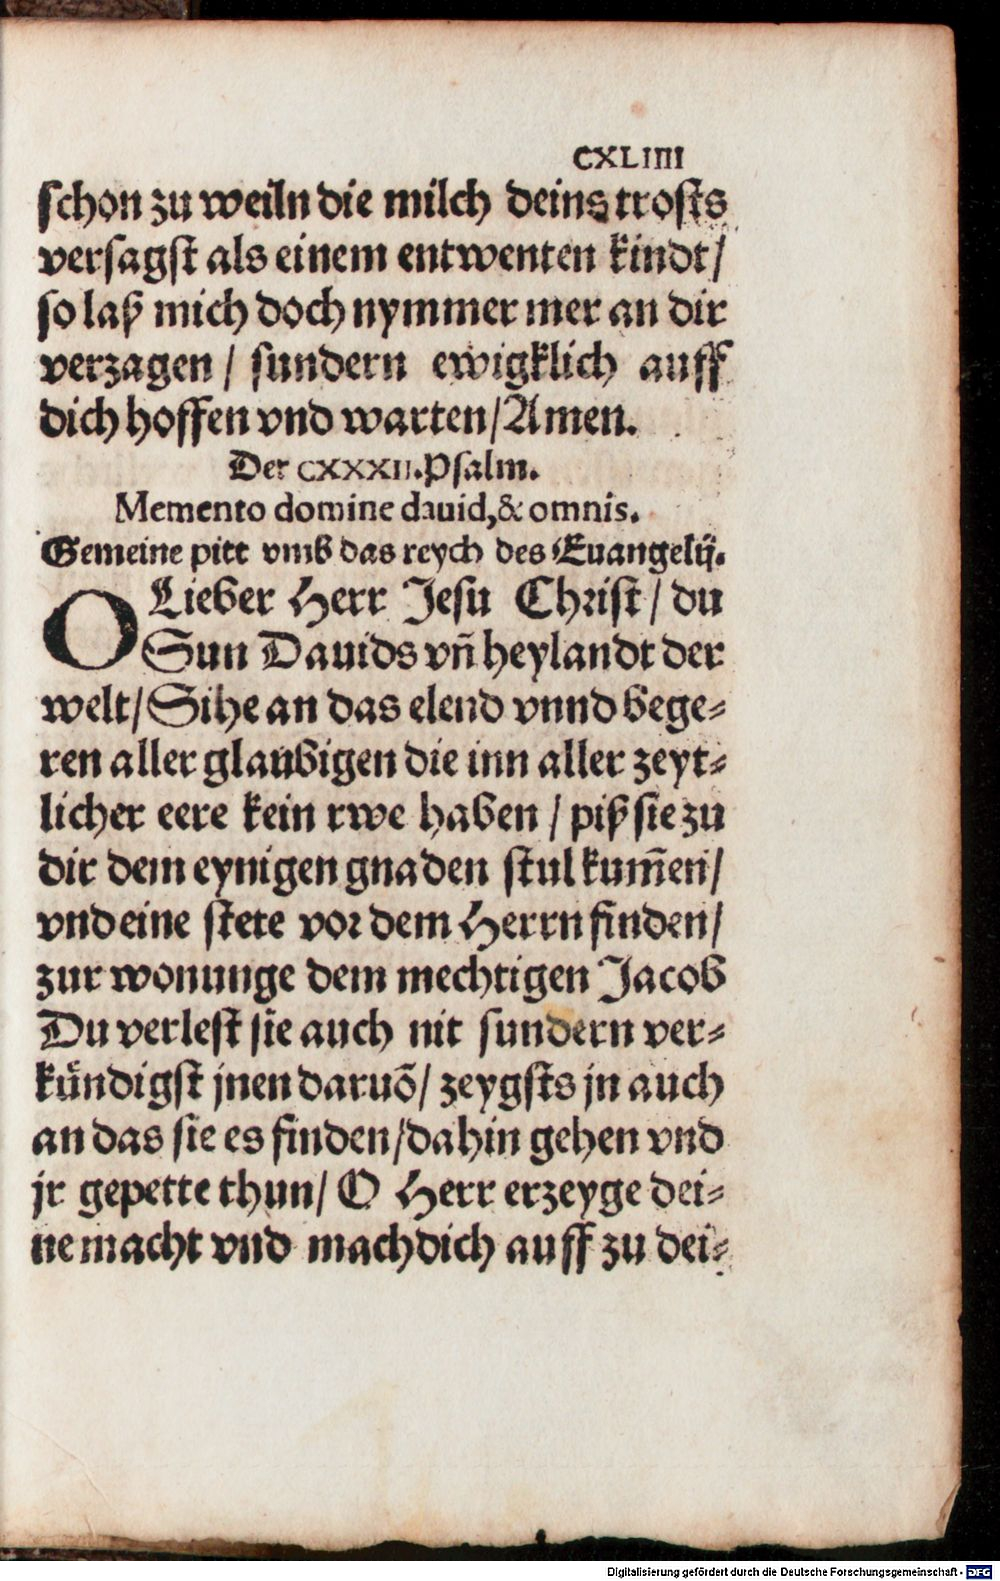 CXLIIII
schon zu weiln die milch deins trosts
versagst als einem entwenten kindt/
so laß mich doch nymmer mer an dir
verzagen / sundern ewigklich auff
dich hoffen vnd warten/Amen.
Der CXXXII.Psalm.
Memento domine dauid,& omnis.
Gemeine pitt vmb das reych des Euangelij.
O Lieber Herr Jesu Christ / du
Sun Dauids vn̄ heylandt der
welt/Sihe an das elend vnnd bege⸗
ren aller glaubigen die inn aller zeyt⸗
licher eere kein rwe haben / piß sie zu
dir dem eynigen gnaden stul kum̄en/
vnd eine stete vor dem Herrn finden/
zur wonunge dem mechtigen Jacob
Du verlest sie auch nit sundern ver⸗
kündigst jnen daruō/ zeygsts jn auch
an das sie es finden/dahin gehen vnd
jr gepette thun/ O Herr erzeyge dei⸗
ne macht vnd mach dich auff zu dei⸗
Digitalisierung gefördert durch die Deutsche Forschungsgemeinschaft - DFG